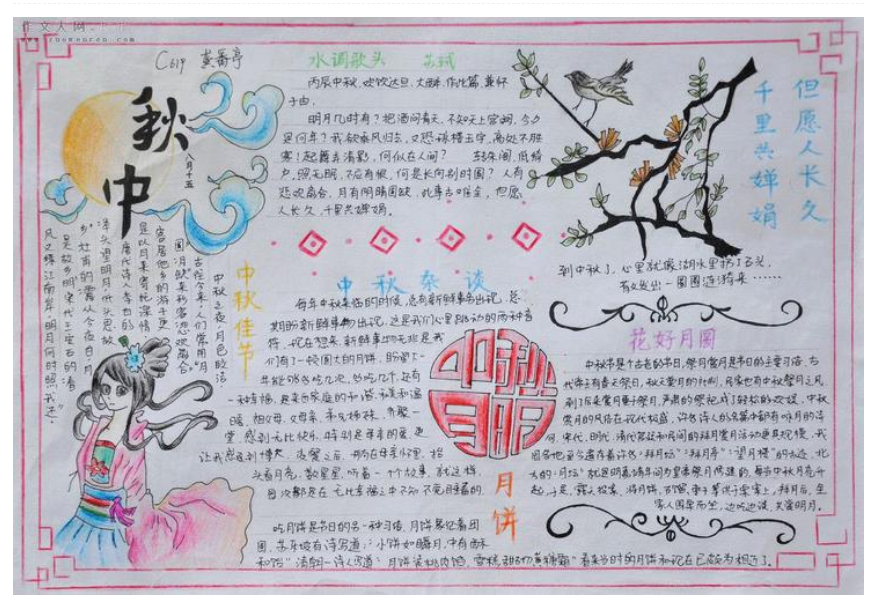 作文人网
C614 黄番亭
水调歌头 苏轼
丙辰中秋，欢饮达旦，大醉，作此篇，兼怀
子由。
明月几时有？把酒问青天，不知天上宫阙，今夕
是何年？我欲乘风归去，又恐琼楼玉宇，高处不胜
寒！起舞弄清影，何似在人间？ 转朱阁，低绮
户，照无眠，不应有恨，何是长向别时圆？人有
悲欢离合，月有阴晴圆缺，此事古难全，但愿
人长久，千里共婵娟。
但愿人长久
千里共婵娟
中秋
八月十五
中秋佳节
中秋之夜，月色皎洁
古往今来，人们常用“月
圆”“月缺”来形容“悲欢离合”
客居他乡的游子更
是以月来寄托深情
唐代诗人李白的
头望明月，低头思故
乡”杜甫的“露从今夜白，月
是故乡明”宋代王安石的“春
风又绿江南岸，明月何时照我还”
中秋杂谈
每年中秋来临的时候，总有新鲜事物出现，总
期盼新鲜事物出现，这是我们心里跳动的两种音
符，现在想来，新鲜事物无非是我
们有了一顿圆大的月饼，盼望了一
年能够多吃几次，多吃几个，还有
一种
暖，祖父母，父母亲，兄弟姊妹，齐聚一
堂，感到无比快乐，特别是母亲的爱，更
让我感受到博大
头看月亮，数星星，听着一个故事，就这样，
每次都是在无比幸福之中不知不觉目睡着的
中秋
月明
月饼
吃月饼是节日的另一种习俗，月饼象征着团
圆，苏东坡有诗写道：“小饼如嚼月，中有酥
和饴”清朝一诗人写道：“月饼
看来当时的月饼和现在已颇为相近了。
到中秋了，心里就像湖水里扔了石头，
有发出一圈圈涟漪来……
花好月圆
中秋节是个古老的节日，祭月赏月是节日的主要习俗，古
代帝王有春天祭日，秋天祭月的社制，民家也有中秋祭月之风
到了后来赏月重于祭月，严肃的祭祀成了轻松的欢娱，中秋
赏月的风俗在唐代极盛，许多诗人的名篇中都有咏月的诗
句，宋代、明代、清代宫廷和民间的拜月赏月活动更具规模，我
国各地至今遗存着许多“拜月坛”“拜月亭”“望月楼”的古迹，北
京的“月坛”就是明嘉靖年间为皇家祭月修造的，每当中秋月亮升
起，于是，露天
家人围桌而坐，边吃边谈，共赏明月。